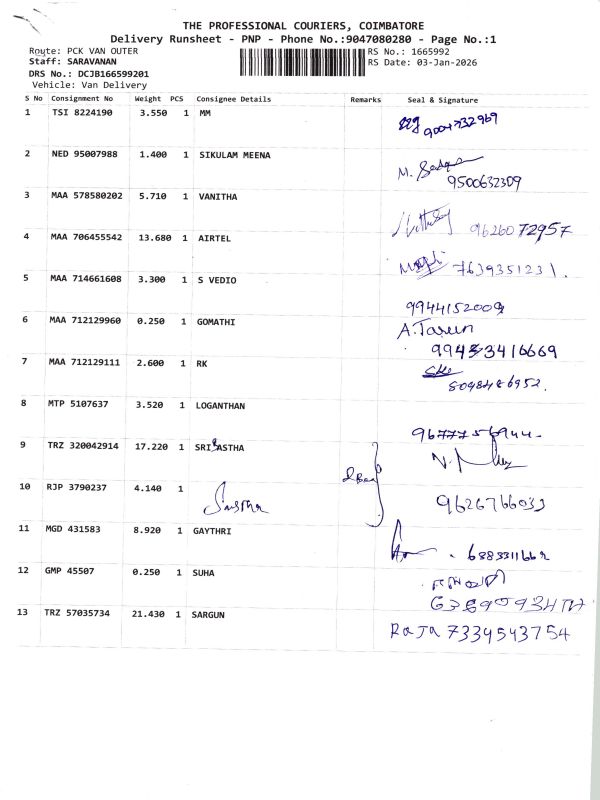 THE PROFESSIONAL COURIERS, COIMBATORE
Delivery Runsheet - PNP - Phone No.:9047080280 - Page No.:1
Route: PCK VAN OUTER RS No.: 1665992
Staff: SARAVANAN RS Date: 03-Jan-2026
DRS No.: DCJB166599201
Vehicle: Van Delivery
S No Consignment No Weight PCS Consignee Details Remarks Seal & Signature
1 TSI 8224190 3.550 1 MM
2 NED 95007988 1.400 1 SIKULAM MEENA
9500632309
3 MAA 578580202 5.710 1 VANITHA
9626072957
4 MAA 706455542 13.680 1 AIRTEL
7639351231.
5 MAA 714661608 3.300 1 S VEDIO
9944152009
6 MAA 712129960 0.250 1 GOMATHI A.Tarun
7 MAA 712129111 2.600 1 RK
8 MTP 5107637 3.520 1 LOGANTHAN
9 TRZ 320042914 17.220 1 SRI SASTHA
10 RJP 3790237 4.140 1 Sastha
11 MGD 431583 8.920 1 GAYTHRI
12 GMP 45507 0.250 1 SUHA
13 TRZ 57035734 21.430 1 SARGUN
RaJa 7339543754